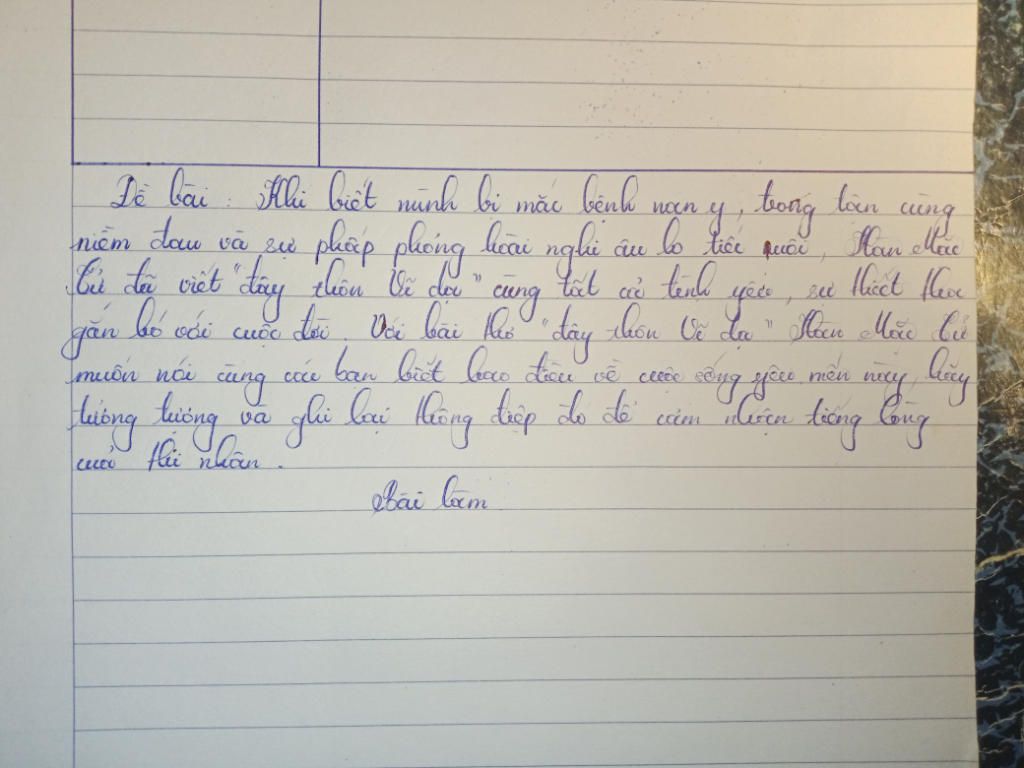 Đề bài : Khi biết mình bị mắc bệnh nan y, trong tận cùng
niềm đau và sự phấp phỏng hoài nghi âu lo tiếc nuôi, Hàn Mặc
Tử đã viết "đây thôn Vĩ dạ" cùng tất cả tình yêu, sự thiết tha
gắn bó với cuộc đời. Với bài thơ "đây thôn Vĩ dạ" Hàn Mặc Tử
muốn nói cùng các bạn biết bao điều về cuộc sống yêu mến này, hãy
tưởng tượng và ghi lại thông điệp đó để cảm nhận tiếng lòng
cuả thi nhân.
Bài làm